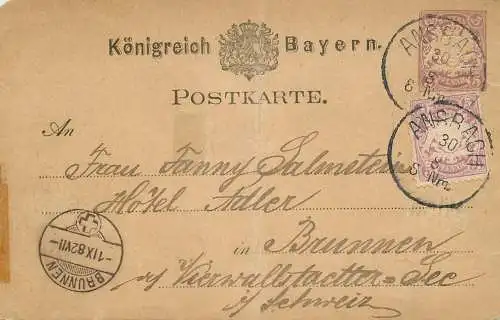 Königreich Bayern.
POSTKARTE.
ANSBACH
30
8
8 Nm
ANSBACH
30
8
8 Nm
An
Frau Fanny Salmstein
Hôtel Adler
in Brunnen
a/ Vierwaldstaetter-See
i/ Schweiz
BRUNNEN
-1 IX 82 VII-